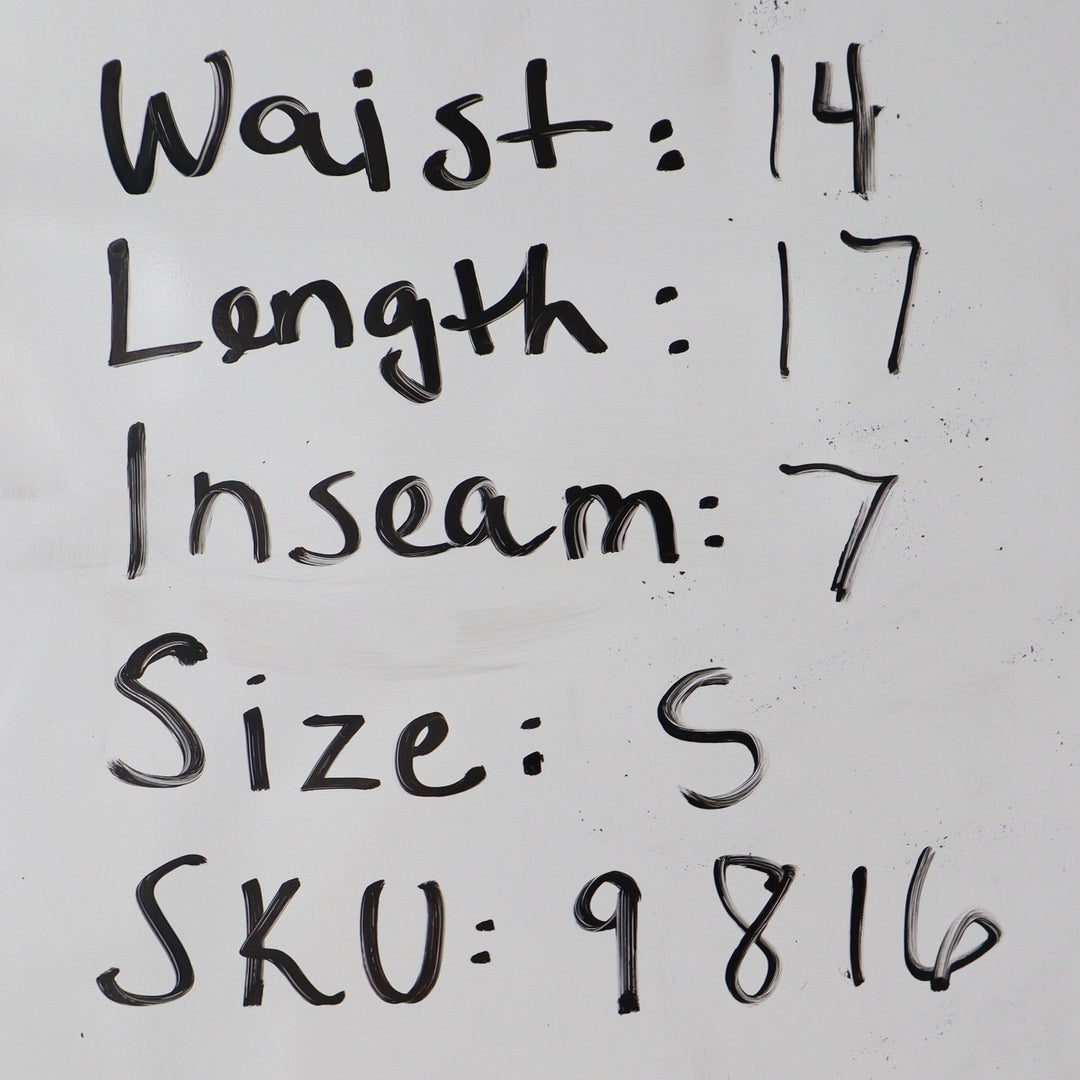 Waist: 14
Length: 17
Inseam: 7
Size: S
SKU: 9816